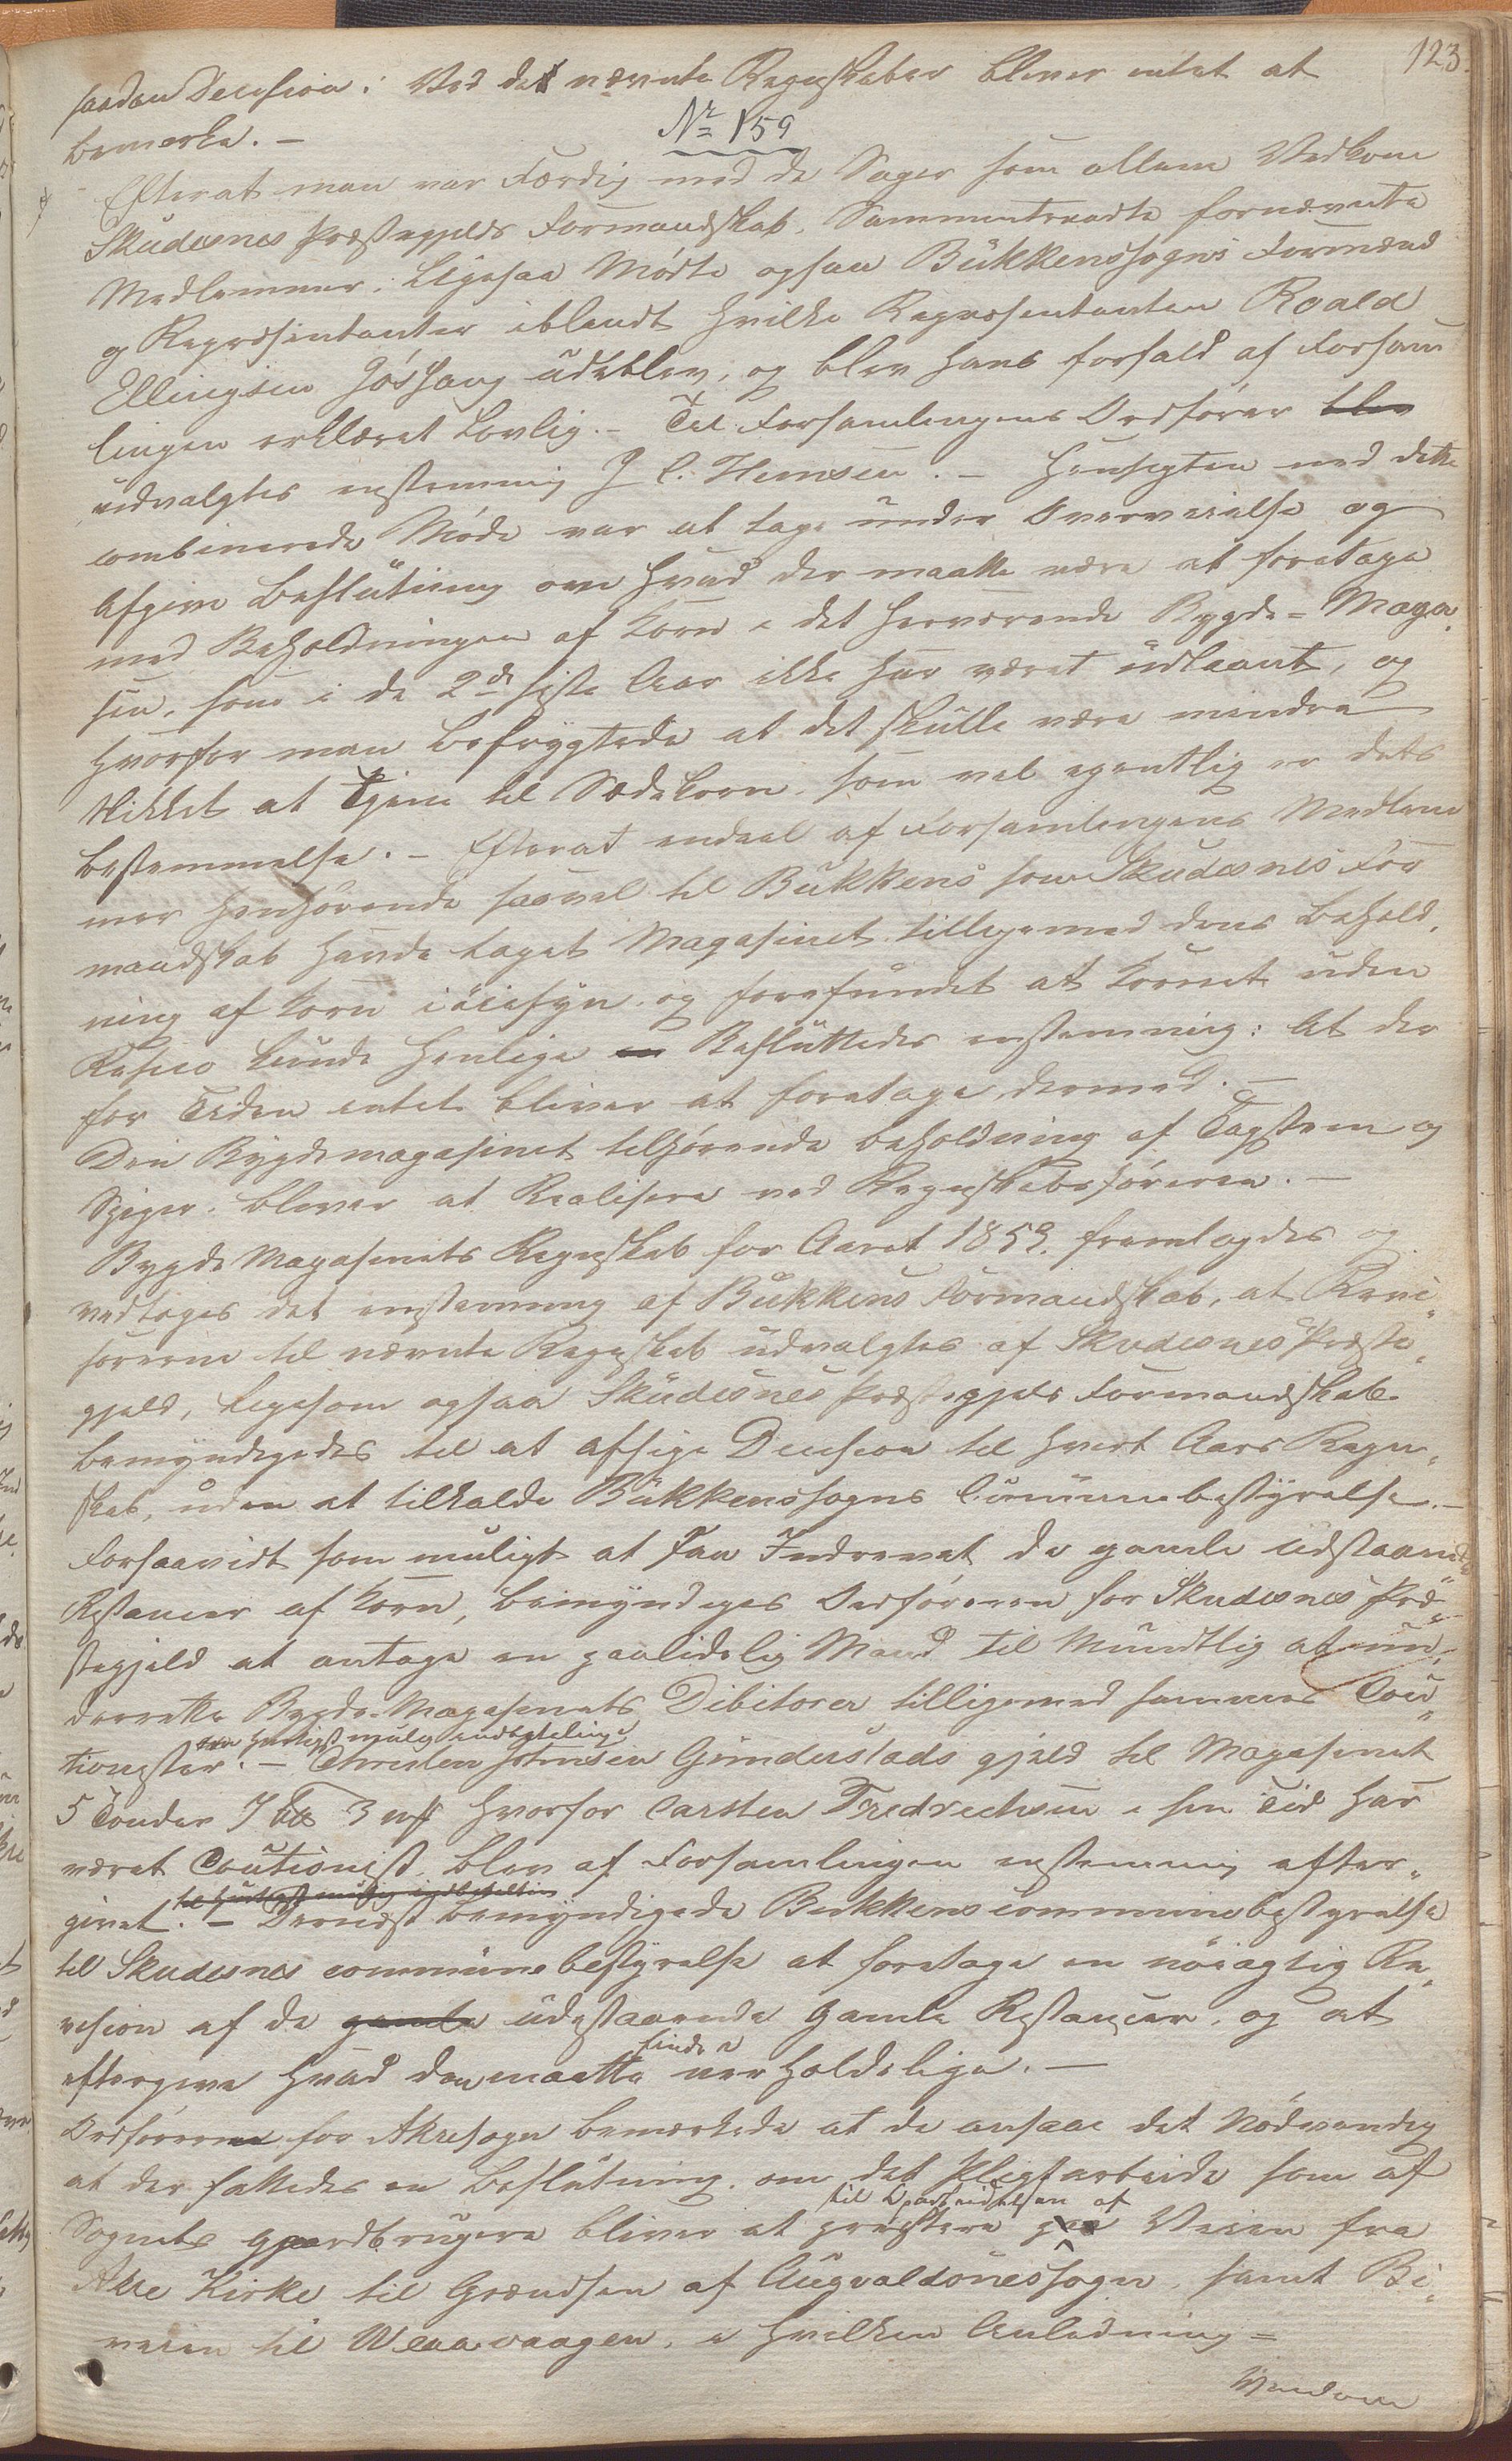 123.
saadan Decision: Ved det nævnte Regnskaber bliver intet at
bemærke. –
No 159
Efterat man var Færdig med de Sager som allene Vedkom
Skudesnes Præstegjelds Formandskab, Sammentraadte fornævnte
Medlemmer. Ligesaa Mødte ogsaa Bukkenssogns Formænd
og Repræsentanter iblandt hvilke Repræsentanten Roald
Ellingsen Jøshaug udeblev, og blev hans forfald af Forsam
lingen erklæret Lovlig. – Til Forsamlingens Ordfører blev
udvalgtes enstemmig J C. Hemsen. – Hensigten med dette
combinerede Møde var at tage under Overveielse og
Afgive Beslutning om hvad der maatte være at foretage
med Beholdningen af Korn i det herværende Bygde-Maga-
sin, som i de 2de siste Aar ikke har været udlaant, og
hvorfor man befrygtede at det skulle være mindre
skikket at tjene til Sædekorn, som vel egentlig er dets
bestemmelse. – Efterat endeel af Forsamlingens Medlem
mer henhørende saavel til Bukkens som Skudesnes For
mandskab havde taget Magasinet tilligemed dens Behold-
ning af Korn i øiesyn og forefundet at Kornet uden
Risico kunde henligge en Besluttedes enstemmig: At der
for Tiden intet bliver at foretage dermed. –
Den Bygdemagasinet tilhørende beholdning af Tagsteen og
Spiger, bliver at Realisere ved Regnskabsføreren. –
Bygde Magasinets Regnskab for Aaret 1859. fremlagdes og
vedtoges det enstemmig af Bukkens Formandskab, at Revi-
sorerne til nævnte Regnskab udvalgtes af Skudesnes Præste-
gjeld, ligesom ogsaa Skudesnes Præstegjelds Formandskab
bemyndigedes til at afsige Decision til hvert Aars Regn-
skab, uden at tilkalde Bukkenssogns Communebestyrelse. –
Forsaavidt som muligt at Faa Inddrevet de gamle udstaaende
Restancer af Korn, bemyndiges Ordføreren for Skudesnes Præ-
stegjeld at antage en paalidelig Mand til Mundtlig at un-
derrette Bygde-Magasinets Debitorer tilligemed sammes Cau-
om hurtigst mulig indbetaling
tionister. – Christen Johnsen Gunderstads gjæld til Magasinet
5 Tønder 7 3 hvorfor Carsten Fredrechsen i sin Tid har
været Cautionist, blev af Forsamlingen enstemmig efter-
til hurtigst mulig indbetaling
givet. – Dernæst bemyndigede Bukkens communebestyrelse
til Skudesnes communebestyrelse at foretage en nøiagtig Re-
vision af de gamle udestaaende gamle Restancer, og at
finde
eftergive hvad den maatte uerholdelige. –
Ordføreren for Akresogn bemærkede at de ansaae det Nødvendig
at der fattedes en beslutning, om det Pligtarbeide som af
til Oparbeidelsen af
Sognets gaardbrugere bliver at præstere paa Veien fra
Akre Kirke til Grændsen af Augvaldsnes sogn, samt Bi-
veien til Weavaagen, i hvilken Anledning =